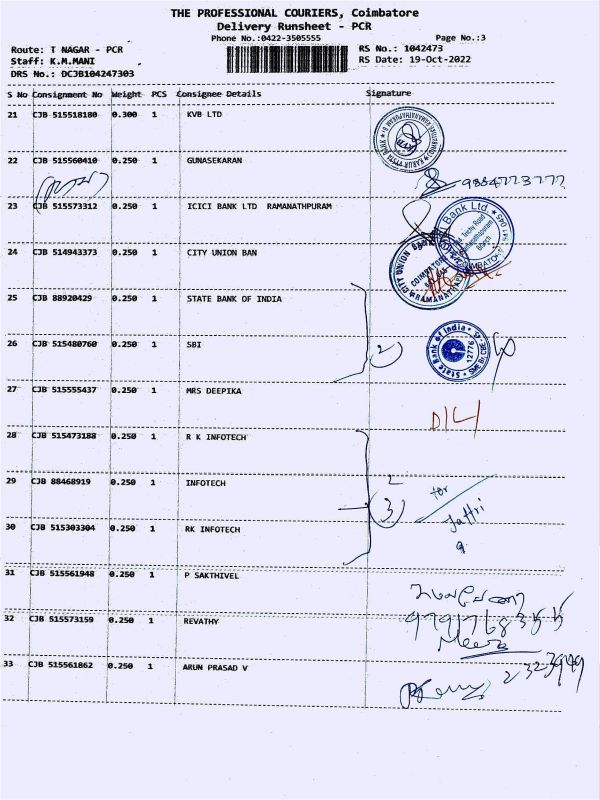 THE PROFESSIONAL COURIERS, Coimbatore
Delivery Runsheet - PCR
Phone No.:0422-3505555 Page No.:3
Route: T NAGAR - PCR RS No.: 1042473
Staff: K.M.MANI RS Date: 19-Oct-2022
DRS No.: DCJB104247303
S No Consignment No Weight PCS Consignee Details Signature
21 CJB 515518180 0.300 1 KVB LTD
22 CJB 515560410 0.250 1 GUNASEKARAN
9884773777
23 CJB 515573312 0.250 1 ICICI BANK LTD RAMANATHPURAM
24 CJB 514943373 0.250 1 CITY UNION BAN
CITY UNION BANK
COIMBATORE
25 CJB 88920429 0.250 1 STATE BANK OF INDIA
26 CJB 515480760 0.250 1 SBI 2
State Bank of India
12776
27 CJB 515555437 0.250 1 MRS DEEPIKA
D/L
28 CJB 515473188 0.250 1 R K INFOTECH
29 CJB 88468919 0.250 1 INFOTECH
3
for
30 CJB 515303304 0.250 1 RK INFOTECH
31 CJB 515561948 0.250 1 P SAKTHIVEL
32 CJB 515573159 0.250 1 REVATHY
Meera
33 CJB 515561862 0.250 1 ARUN PRASAD V